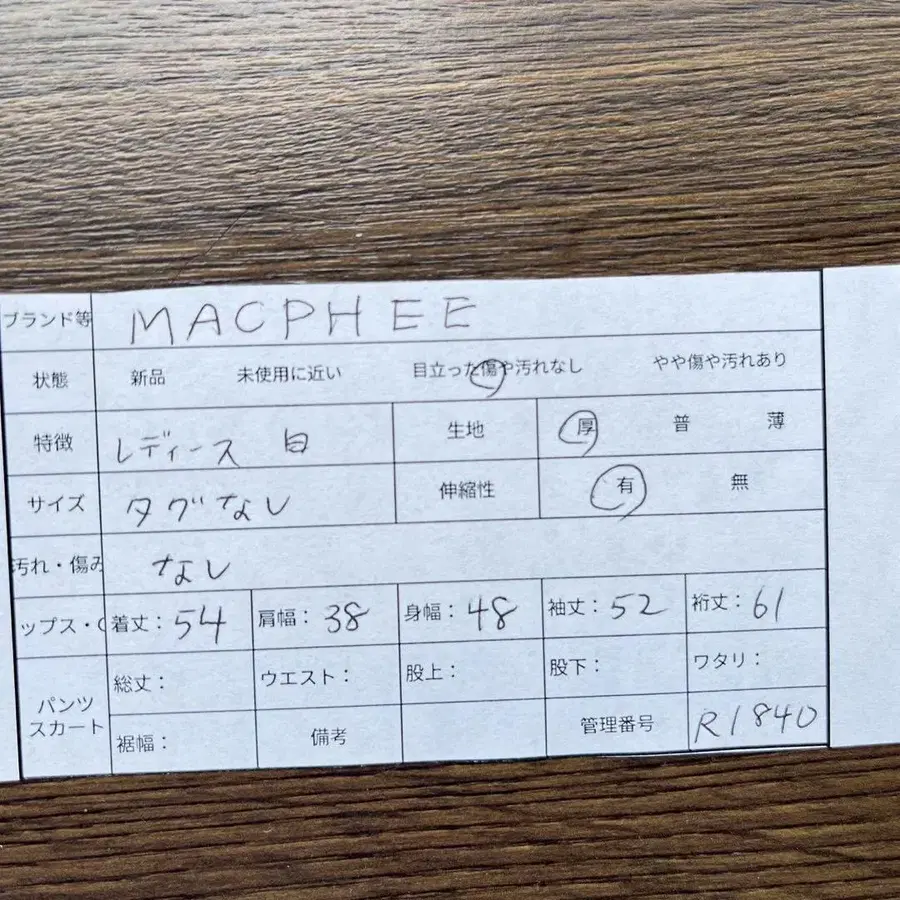 ブランド等 MACPHEE
状態 新品 未使用に近い 目立った傷や汚れなし やや傷や汚れあり
特徴 レディース 白 生地 厚 普 薄
サイズ タグなし 伸縮性 有 無
汚れ・傷み なし
ップス・ 着丈：54 肩幅：38 身幅：48 袖丈：52 裄丈：61
パンツ スカート
総丈： ウエスト： 股上： 股下： ワタリ：
裾幅： 備考 管理番号 R1840